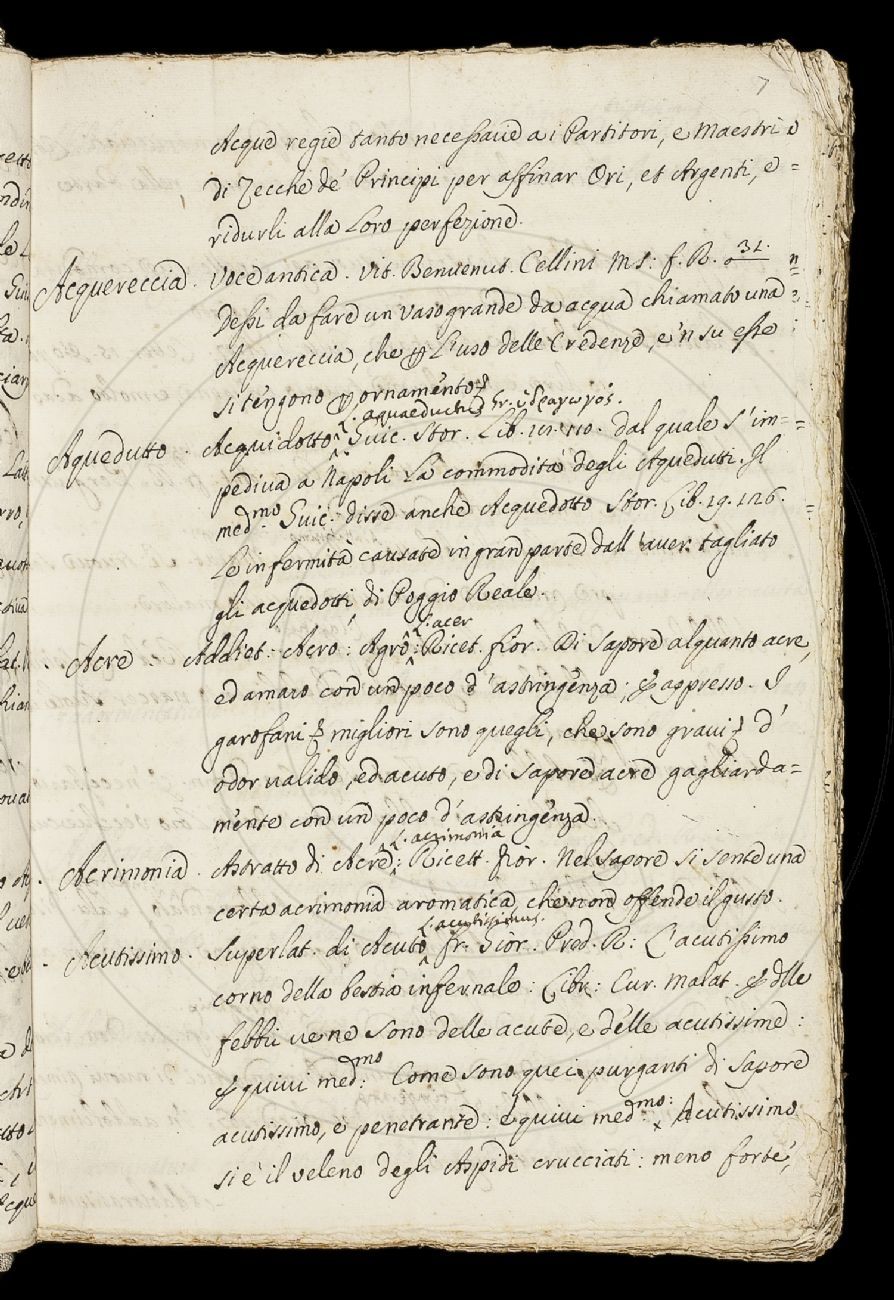 7
Acque regie tanto necessarie a i Partitori, e Maestri
di Zecche de' Principi per affinar Ori, et Argenti, e
ridurli alla Loro perfezione.
Acquereccia. Voce antica. Vit. Benvenut. Cellini MS: f. R. 31.
Dessi da fare un vaso grande da acqua chiamato una
Acquereccia, che ꝑ L'uso delle Credenze, e'n su esse
si tengono ꝑ ornamento.
L. aquaeductus Gr. ὑδραγωγός.
Aquedutto. Acquidotto: Guic. Stor. Lib. 121. 110. dal quale s'im=
pediva a Napoli La commodità degli Aquedutti. Il
med.mo Guic. disse anche Acquedotto Stor. Lib. 19. 126.
Le infermità causate in gran parte dall'aver tagliato
gli acquedotti, di Poggio Reale.
L. acer
Acre. Addiet. Acro: Agro: Ricet. fior. Di sapore alquanto acre,
ed amaro con un poco d'astringenza; & appresso. I
garofani migliori sono quegli, che sono gravi, d'
odor valido, ed acuto, e di sapore acre gagliarda=
mente con un poco d'astringenza.
L. acrimonia
Acrimonia. Astratto di Acre: Ricett. fior. Nel sapore si sente una
certa acrimonia aromatica che non offende il gusto.
L. acutissimus.
Acutissimo. Superlat. di Acuto fr. Gior. Pred. R: L'acutissimo
corno della bestia infernale: Libr: Cur. Malat. & dlle
febbri ve ne sono delle acute, e delle acutissime:
& quivi med.mo: Come sono quei purganti di sapore
acutissimo, e penetrante: e quivi med.mo: Acutissimo
si e' il veleno degli Aspidi crucciati: meno forte,